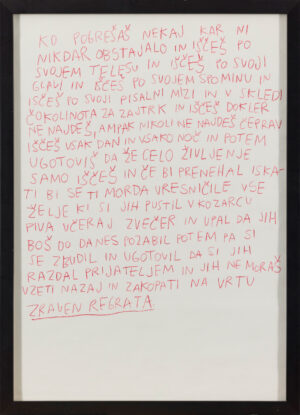 KO POGREŠAŠ NEKAJ KAR NI
NIKDAR OBSTAJALO IN IŠČEŠ PO
SVOJEM TELESU IN IŠČEŠ PO SVOJI
GLAVI IN IŠČEŠ PO SVOJEM SPOMINU IN
IŠČEŠ PO SVOJI PISALNI MIZI IN V SKLEDI
ČOKOLINOTA ZA ZAJTRK IN IŠČEŠ DOKLER
NE NAJDEŠ, AMPAK NIKOLI NE NAJDEŠ ČEPRAV
IŠČEŠ VSAK DAN IN VSAKO NOČ IN POTEM
UGOTOVIŠ DA ŽE CELO ŽIVLJENJE
SAMO IŠČEŠ IN ČE BI PRENEHAL ISKA-
TI BI SE TI MORDA URESNIČILE VSE
ŽELJE KI SI JIH PUSTIL V KOZARCU
PIVA VČERAJ ZVEČER IN UPAL DA JIH
BOŠ DO DANES POZABIL POTEM PA SI
SE ZBUDIL IN UGOTOVIL DA SI JIH
RAZDAL PRIJATELJEM IN JIH NE MORAŠ
VZETI NAZAJ IN ZAKOPATI NA VRTU
ZRAVEN REGRATA